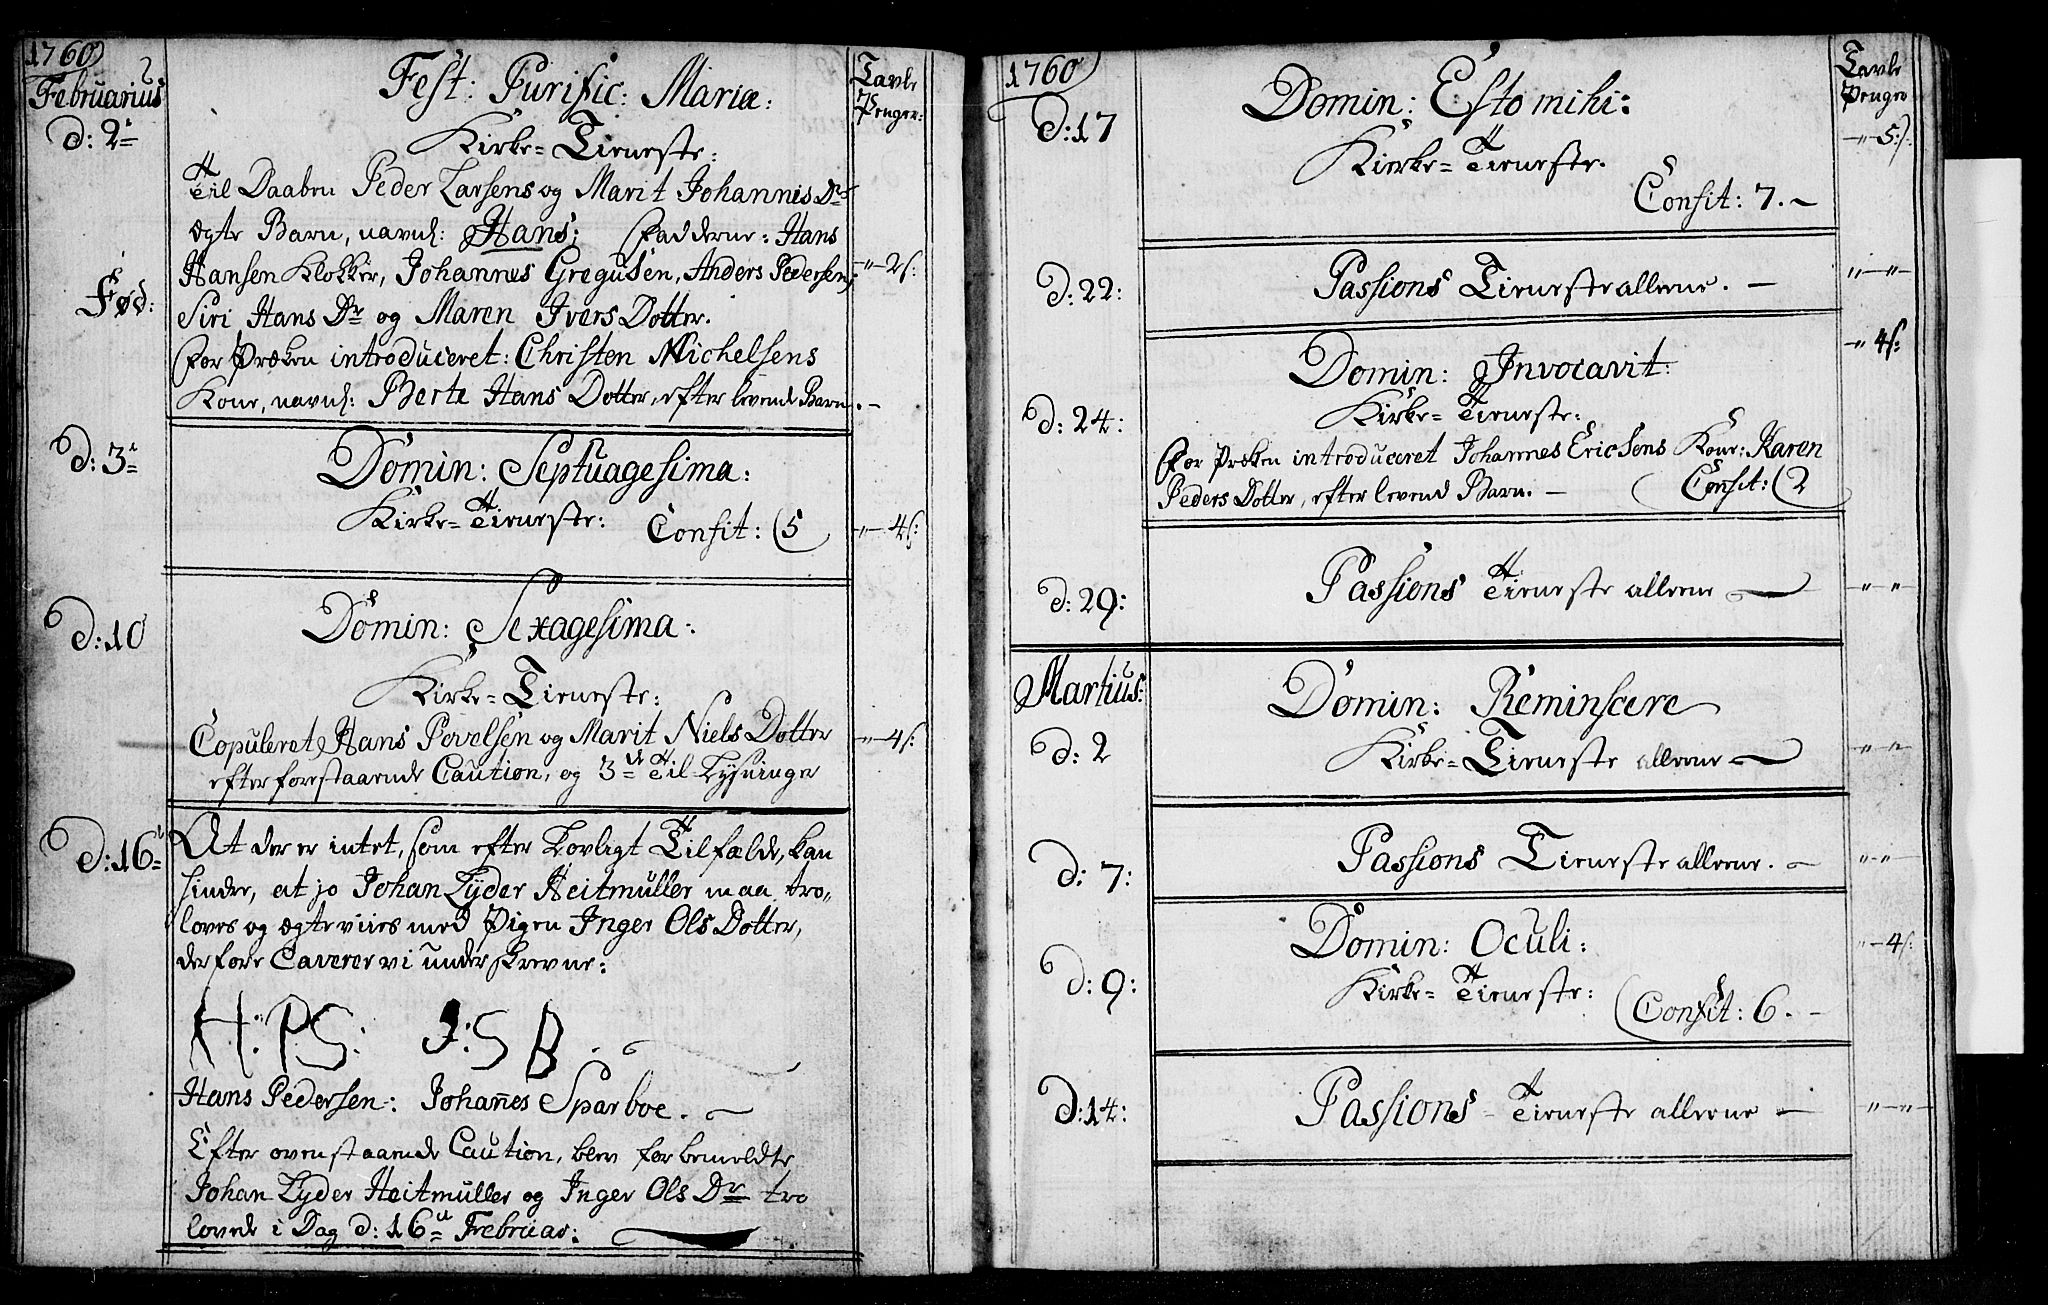 1760
Februarius
d: 2
Fest: Purific: Mariæ:
Tavle
Penger:
Kirke=Tieneste:
Til Daaben Peder Larsens og Marit Johannis Dr
Ægte Barn, navnl: Hans; Fadderne: Hans
Hansen Klokker, Johannes Gregusen, Anders Pedersen,
"-2s:
Fød:
Siri Hans Dr og Maren Ivers Dotter.
For Præken introduceret: Christen Michelsens
Kone, navnl: Berte Hans Dotter, efter levende Barn. -
d: 3
Domin: Septuagesima:
Kirke=Tieneste: Confit: 5
"-4s:
d: 10
Domin: Sexagesima:
Kirke=Tieneste:
Copuleret Hans Povelsen og Marit Niels Dotter
"-4s:
efter forestaaende Caution, og 3de Til Lysninger
d: 16
At der er intet, som efter Lovligt Tilfælde, kan
hindre, at jo Johan Lÿder Heitmuller maa tro-
loves og ægteviies med Pigen Inger Ols Dotter,
derfore Caverer vi underskrevne:
H: PS: J:S B
Hans Pedersen: Johañes Sparboe. -
Efter ovenstaaende Caution, blev forbemeldte
Johan Lyder Heitmüller og Inger Ols Dr tro
lovede i Dag d: 16 Februar:
1760
d: 17
Domin: Esto mihi:
Tavle
Penger
"-5:s
Kierke=Tieneste.
Confit: 7. -
d: 22:
Passions Tieneste allene. -
"-"-
Domin: Invocavit:
"-4s:
d: 24:
Kirke=Tieneste:
For Præken introduceret Johannes Ericsens Kone: Karen
Peders Dotter, efter levend Barn. - Confit: 2
d: 29:
Passions Tieneste allene -
"-"-
Martius:
d: 2
Domin: Reminscere
Kirke=Tieneste allene -
"-"-
d: 7:
Passions Tieneste allene. -
"-"-
d: 9:
Domin: Oculi:
"-4s:
Kirke=Tieneste: Confit: 6. -
d: 14:
Passions Tieneste allene -
"-"-